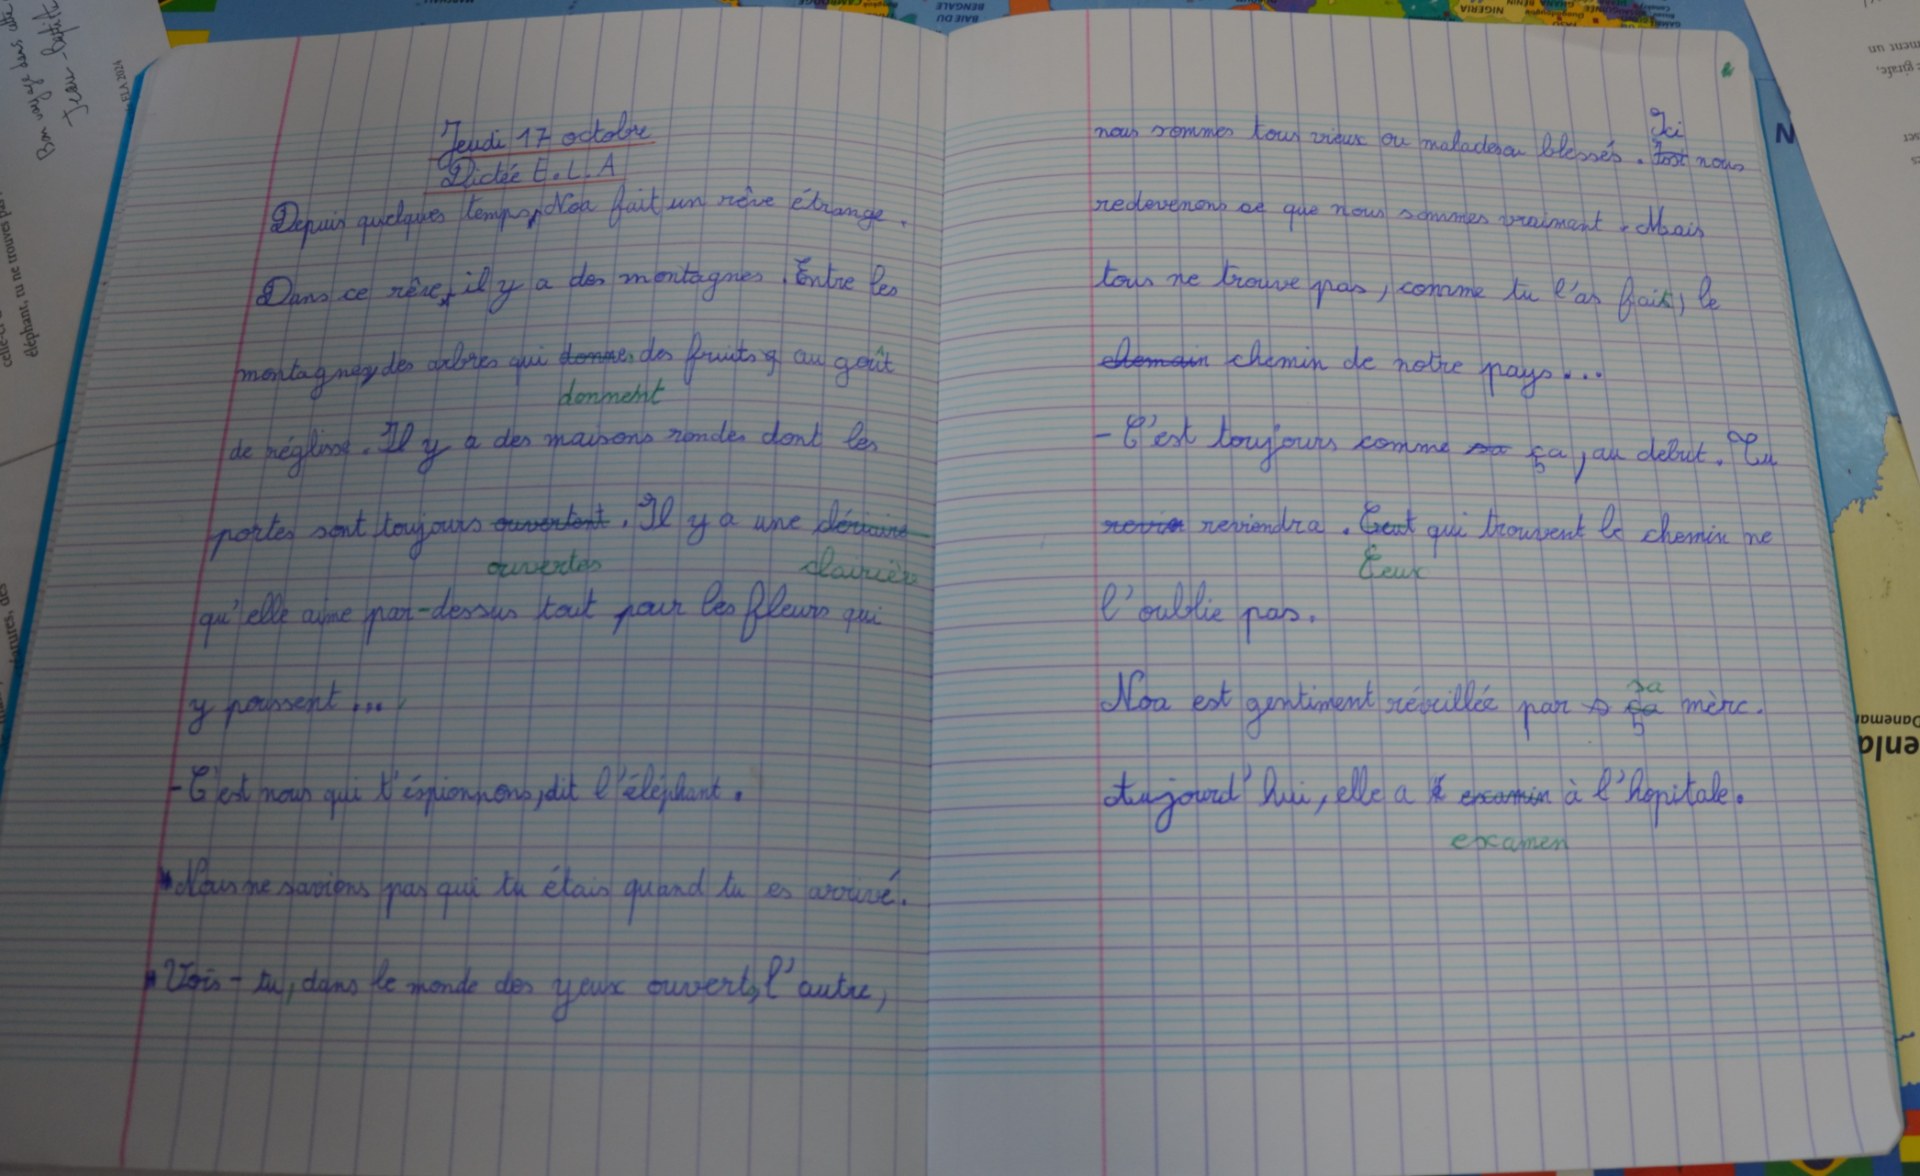 Jeudi 17 octobre
Dictée E.L.A
Depuis quelques temps, Noa fait un rêve étrange.
Dans ce rêve, il y a des montagnes. Entre les
montagnes, des arbres qui donnes des fruits au goût
donnent
de réglisse. Il y a des maisons rondes dont les
portes sont toujours ouvertent. Il y a une
ouvertes clairière
qu'elle aime par-dessus tout pour les fleurs qui
y poussent...
- C'est nous qui t'éspionnons, dit l'éléphant.
Nous ne savions pas qui tu étais quand tu es arrivé.
Vois-tu, dans le monde des yeux ouverts, l'autre,
nous sommes tous vieux ou malades ou blessés. Ici nous
redevenons ce que nous sommes vraiment. Mais
tous ne trouve pas, comme tu l'as fait, le
chemain chemin de notre pays...
- C'est toujours comme sa ça, au debut. Tu
revien reviendra. Ceut qui trouvent le chemin ne
Ceux
l'oublie pas.
sa
Noa est gentiment réveillée par ça mère.
Aujourd'hui, elle a examin à l'hopitale.
examen
Bon voyage dans cette
Jean-Baptiste
ELA 2024
éléphant, tu ne trouves pas
BAIE DU BENGALE
NIGERIA
GHANA BENIN
N
Danemar
enla
ment un